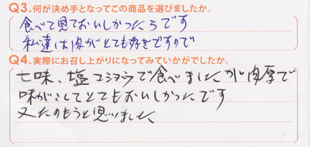 Q3.何が決め手となってこの商品を選びましたか。
食べて見ておいしかったらです
私達は肉がとても好きですので
Q4.実際にお召し上がりになってみていかがでしたか。
七味、塩コショウで食べましたが肉厚で
味がこしてとてもおいしかったです
又たのもうと思いました